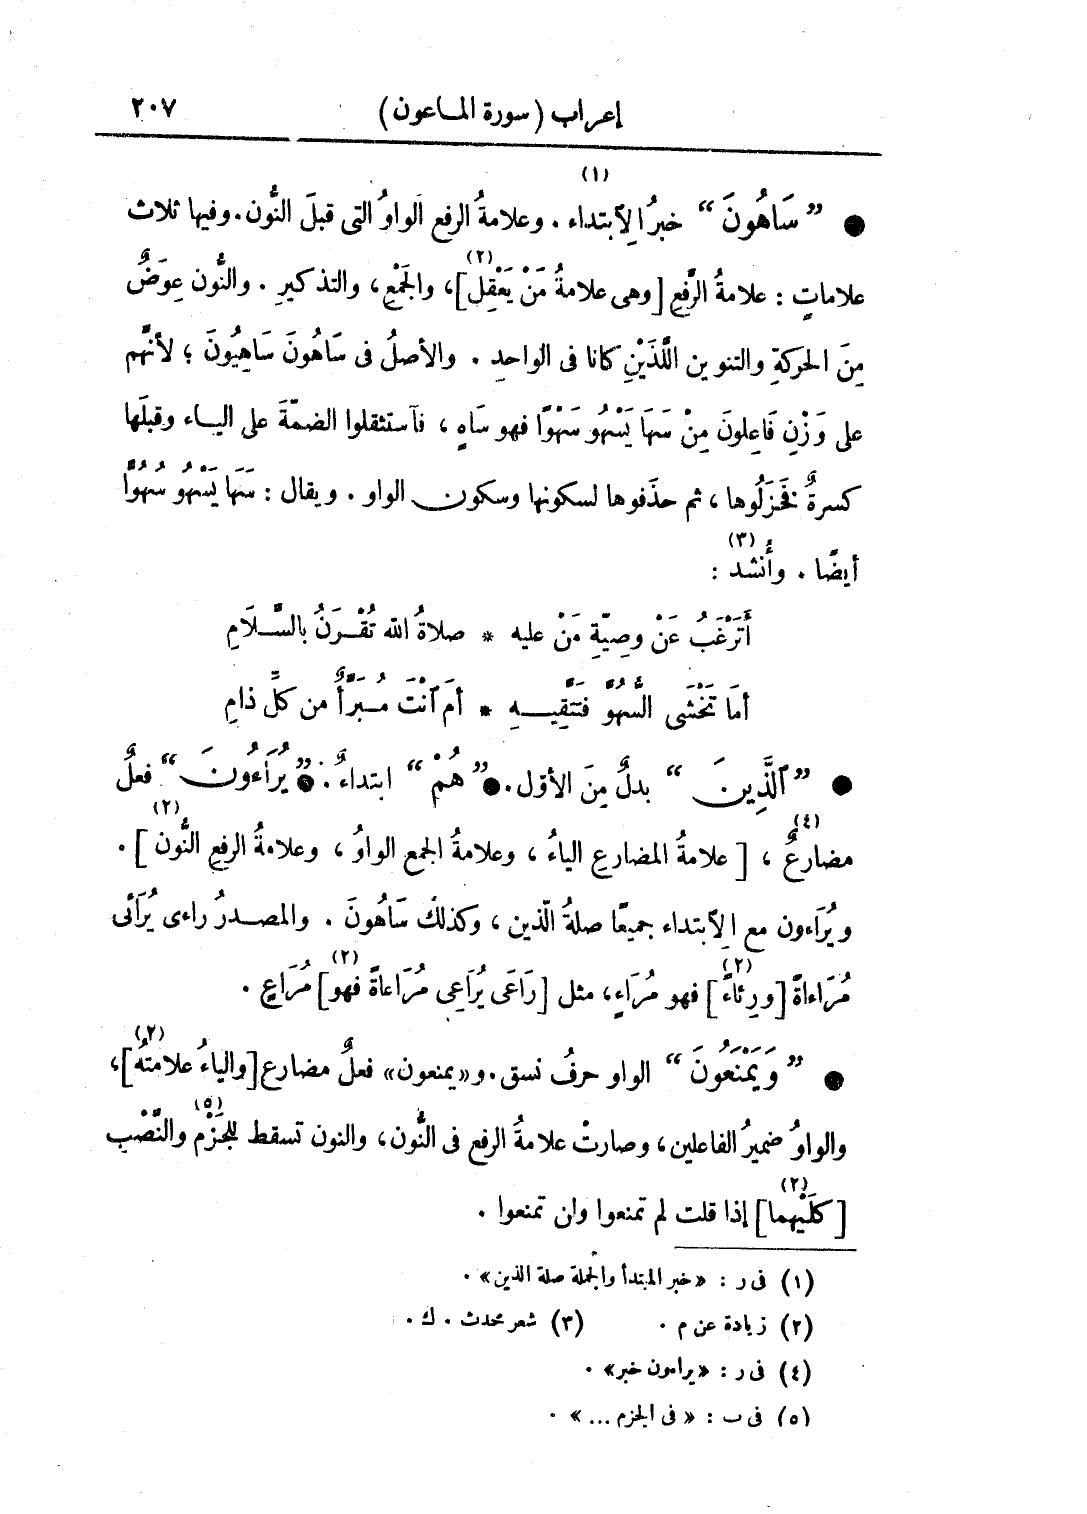 إعراب (سورة الماعون) ٢٠٧
● ” سَاهُونَ “ خبرُ الِابتداء (١). وعلامةُ الرفع الواوُ التى قبلَ النُّون. وفيها ثلاث
علاماتٍ : علامةُ الرَّفعِ [وهى علامةُ مَنْ يَعْقِل] (٢)، والجَمْعِ، والتذكيرِ . والنُّون عِوَضٌ
مِنَ الحركةِ والتنوين اللَّذَيْنِ كانا فى الواحدِ . والأصلُ فى سَاهُونَ سَاهِيُونَ ؛ لأنّهم
على وَزْنِ فَاعِلونَ مِنْ سَهَا يَسْهُو سَهْوًا فهو سَاهٍ ، فٱستثقلوا الضمّةَ على الياء وقبلَها
كسرةٌ فخَزَلُوها ، ثم حذَفوها لسكونها وسكون الواو . ويقال : سَهَا يَسْهُو سُهُوًّا
أيضًا . وأُنشد (٣) :
أَتَرْغَبُ عَنْ وصِيّةِ مَنْ عليه * صلاةُ الله تُقْرَنُ بالسَّلَامِ
أمَا تَخْشَى السُّهُوَّ فتَتَّقِيهِ * أمَ ٱنْتَ مُبَرَّأٌ من كلِّ ذامِ
● ” ٱلَّذِينَ “ بدلٌ مِنَ الأوّل. ● ” هُمْ “ ابتداءٌ . ● ” يُرَاءُونَ “ فعلٌ
مضارعٌ (٤) ، [ علامةُ المضارعِ الياءُ ، وعلامةُ الجمع الواوُ ، وعلامةُ الرفعِ النُّون (٢) ] .
ويُرَاءون مع الِابتداء جميعًا صلةُ الّذين ، وكذلك سَاهُونَ . والمصدرُ راءى يُرَائى
مُرَاءاةً [ورِئاءً (٢)] فهو مُرَاءٍ، مثل [رَاعَى يُرَاعِى مُرَاعاةً فهو (٢)] مُرَاعٍ .
● ” وَيَمْنَعُونَ “ الواو حرفُ نسق. و«يمنعون» فعلٌ مضارع [والياءُ علامتهُ (٢)]،
والواوُ ضميرُ الفاعلين، وصارتْ علامةُ الرفع فى النُّون، والنون تسقط للجَزْم (٥) والنَّصْبِ
[كلَيْهِما (٢)] إذا قلت لم تمنعوا ولن تمنعوا .
(١) فى ر : «خبر المبتدأ والجملة صلة الذين» .
(٢) زيادة عن م . (٣) شعر محدث . ك .
(٤) فى ر : «يراءون خبر» .
(٥) فى ب : « فى الجزم ... » .